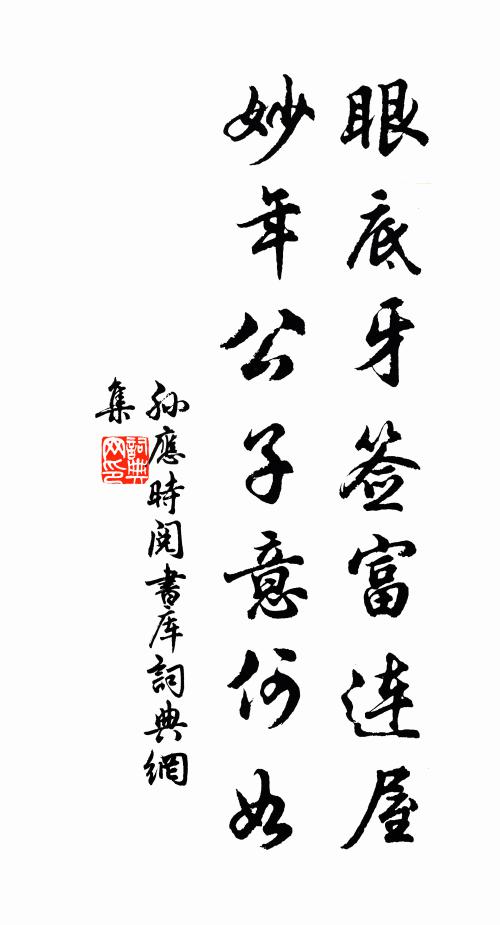 眼底牙签富连屋
妙年公子意何如
孙應時閱書库詞典網
集
詞典網印